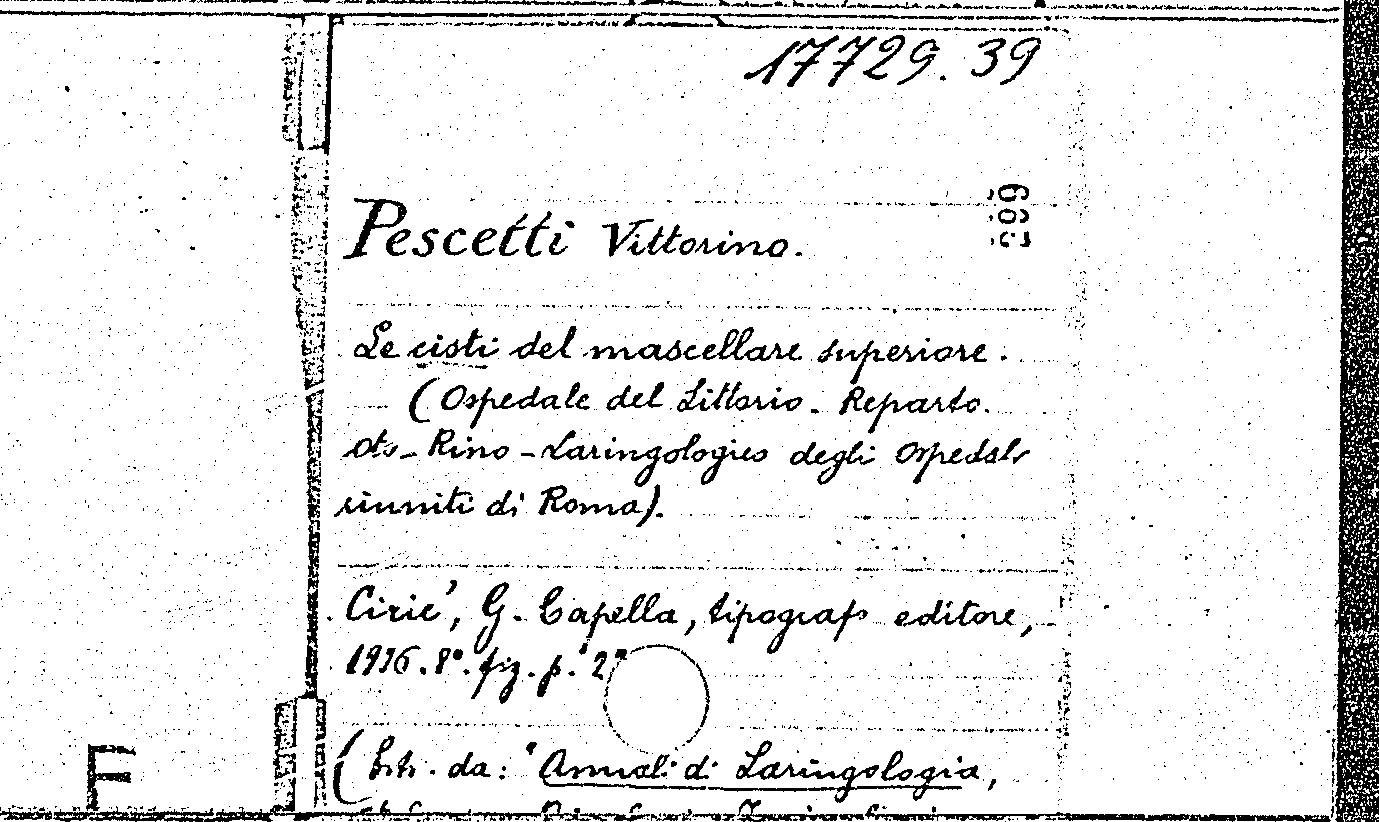 17729.39
Pescetti Vittorino.
Le cisti del mascellare superiore.
(Ospedale del Littorio - Reparto.
Oto-Rino-Laringologico degli Ospedali
riuniti di Roma).
Cirie', G. Capella, tipografo editore,
1936. 8°. fig. p.
(Estr. da: "Annali di Laringologia,
F